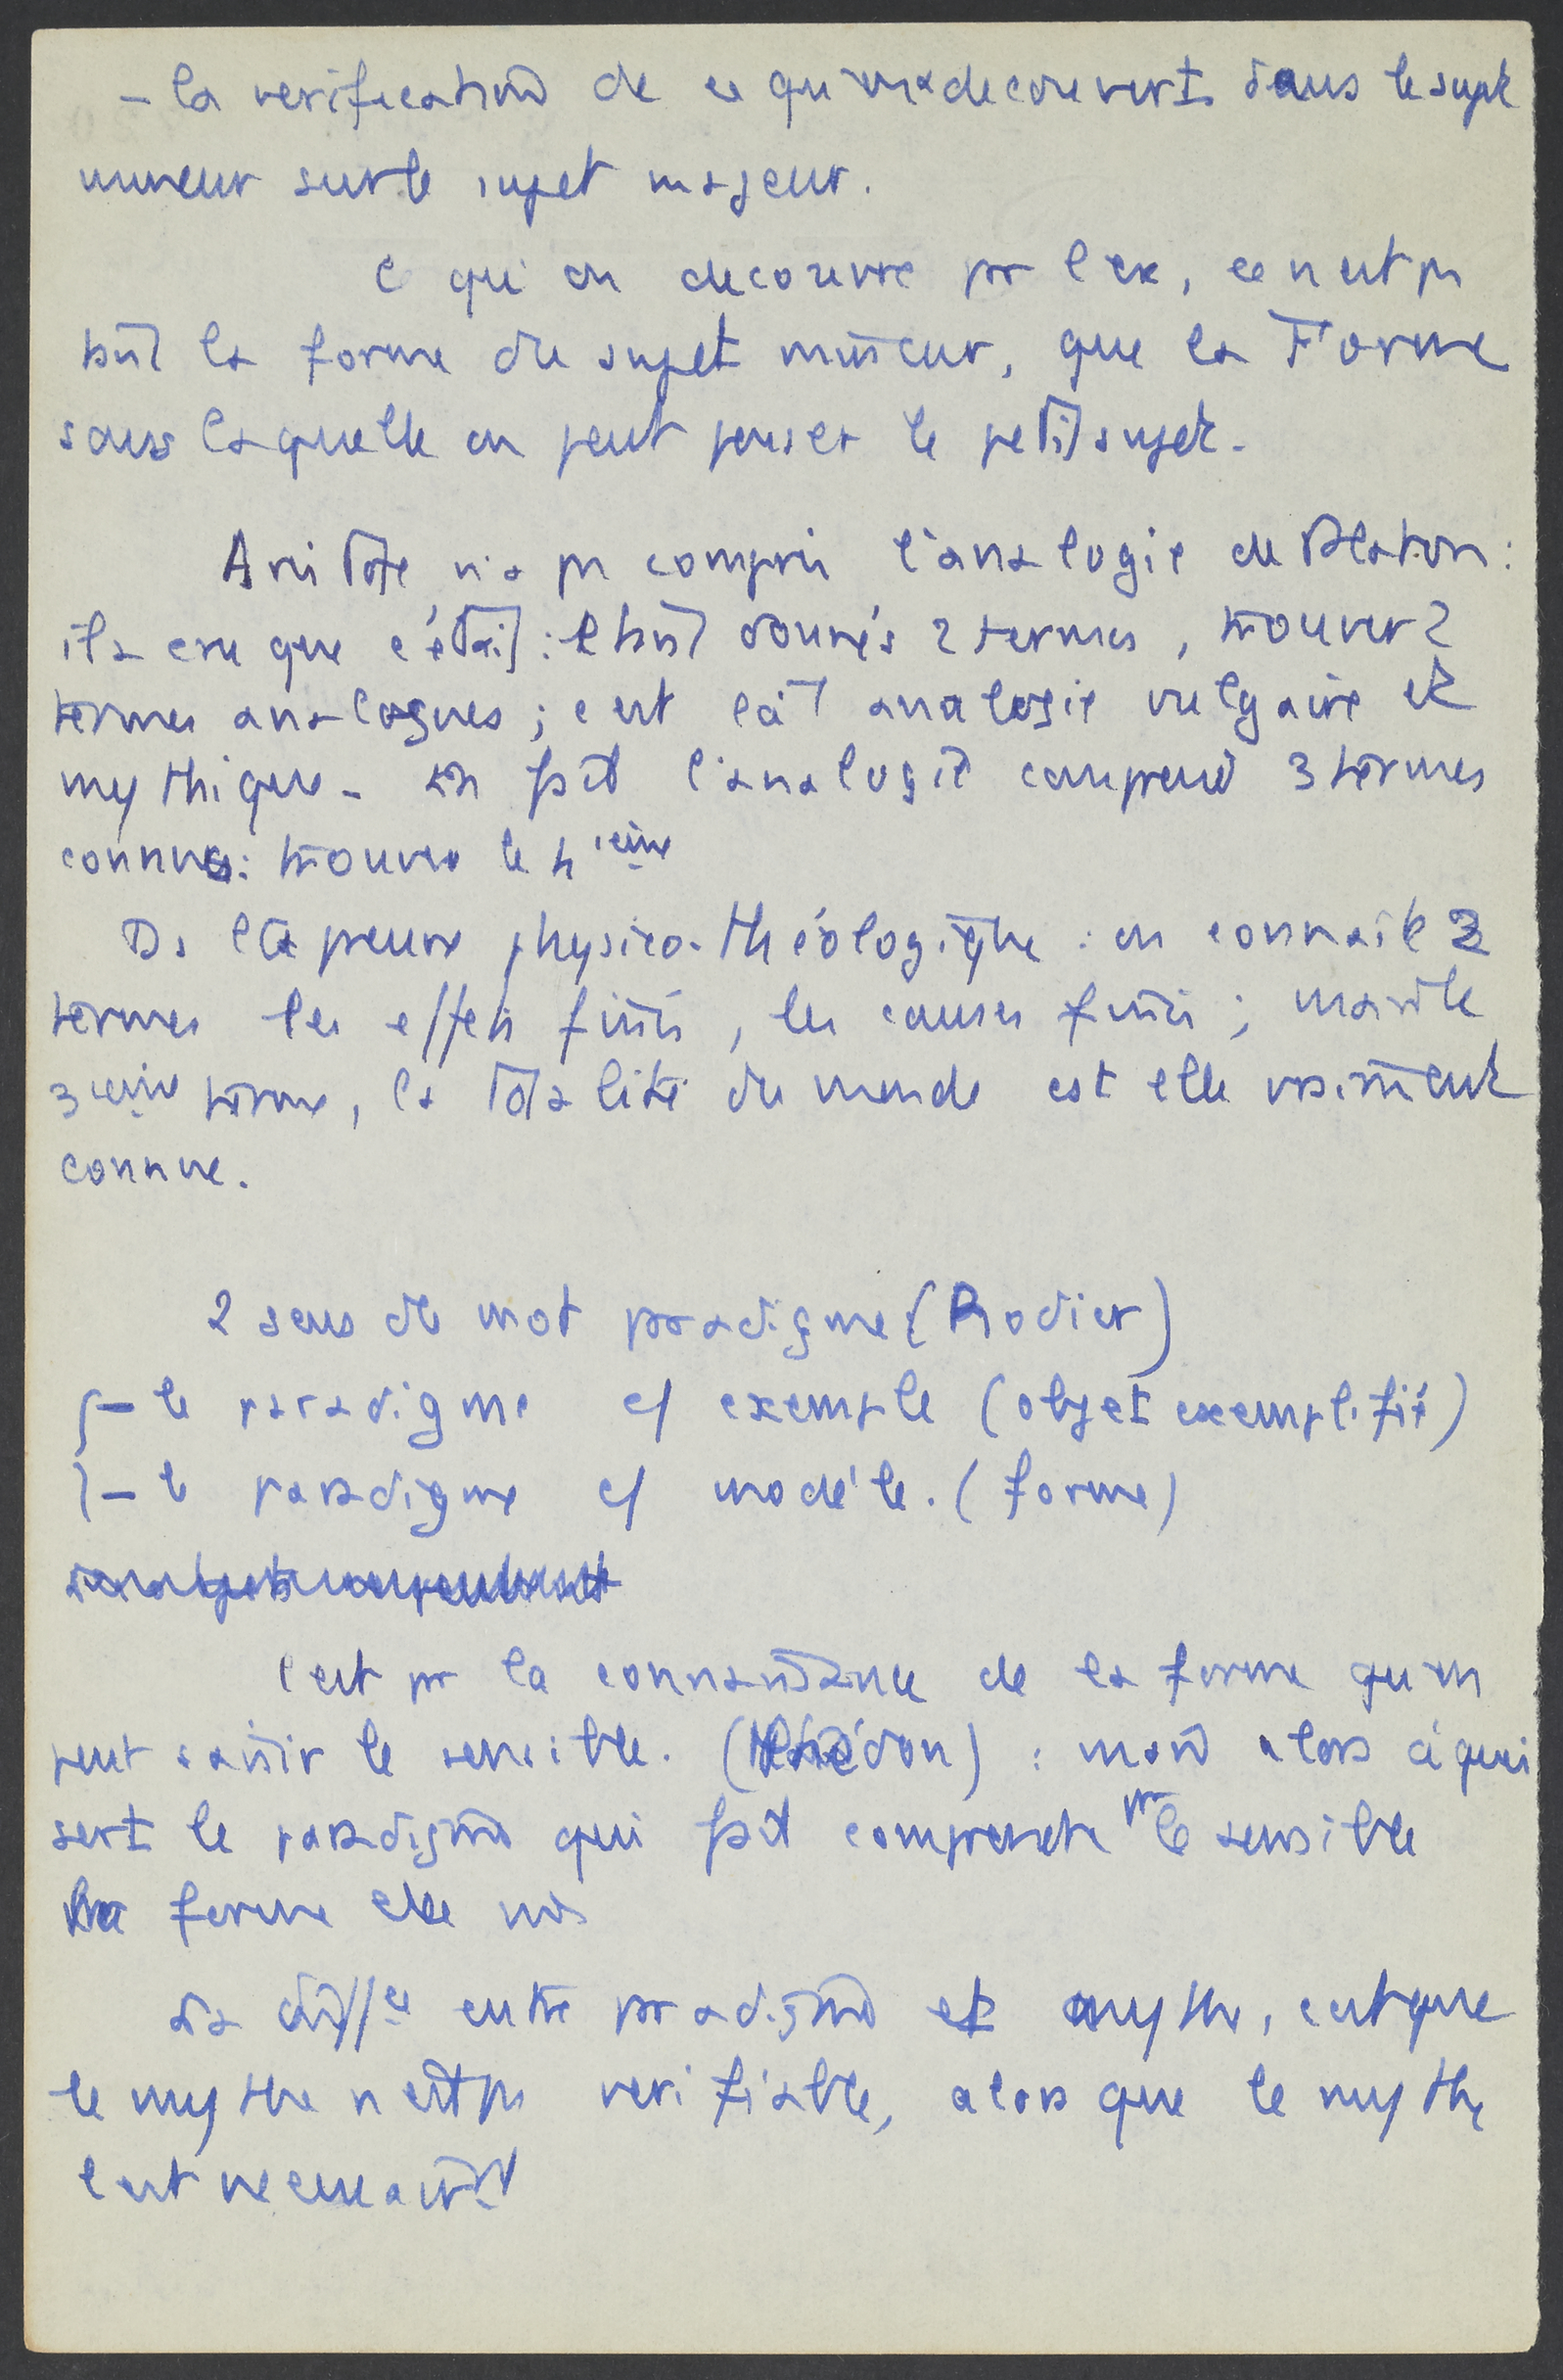 - la verification de ce qu'on a decouvert dans le sujet
mineur sur le sujet majeur.
C qu'on decouvre par l'ex, ce n'est pas
tant la forme du sujet mineur, que la Forme
sans laquelle on peut penser le petit sujet.
Aristote n'a pas compris l'analogie de Platon :
il a cru que c'était : étant donnés 2 termes, trouver 2
termes analogues ; c'est là analogie vulgaire et
mythique. En fait l'analogie comprend 3 termes
connus : trouver le 4ieme
Ds la preuve physico-théologique : on connait 2
termes les effets finis, les causes finies ; mais le
3ieme terme, la totalité du monde est elle vraiment
connue.
2 sens de mot paradigme (Rodier)
- le paradigme c/ exemple (objet exemplifié)
- le paradigme c/ modèle. (forme)
C'est par la connaissance de la forme qu'on
peut saisir le sensible. (Phédon) : mais alors à quoi
sert le paradigme qui fait comprendre par le sensible
la forme elle mm
La diffce entre paradigme et mythe, c'est que
le mythe n'est pas verifiable, alors que le mythe
l'est necessairt